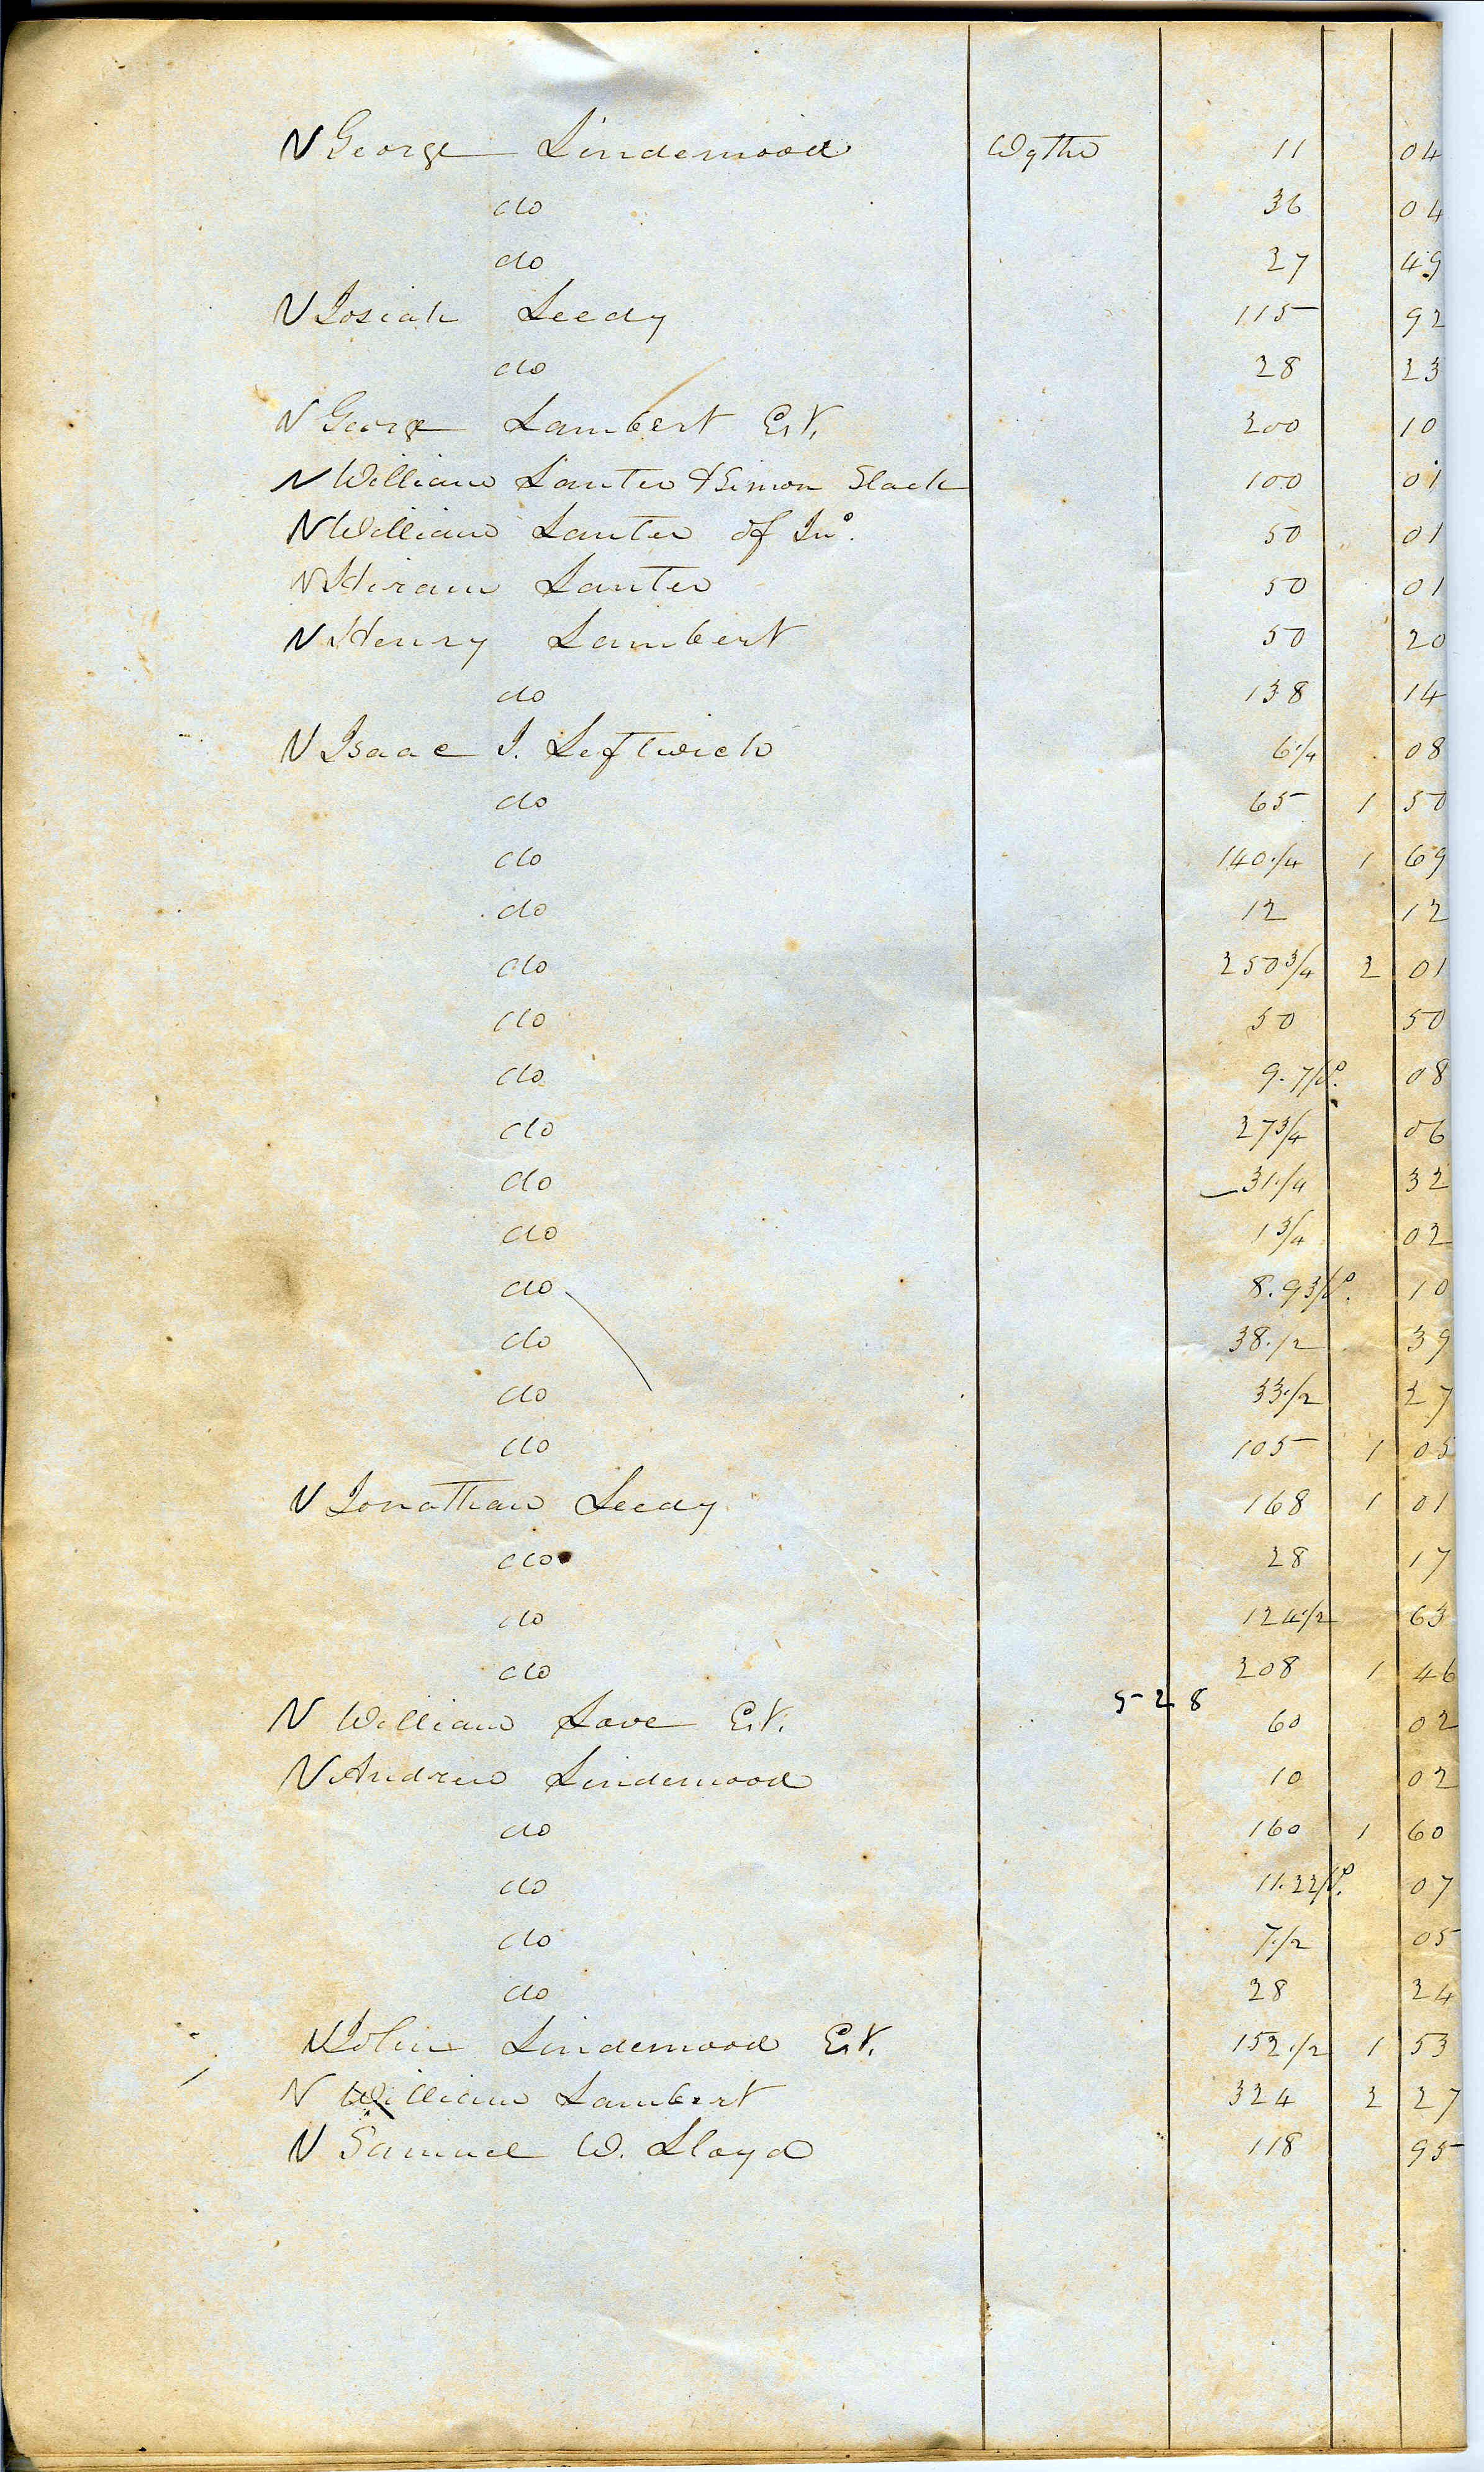 N George Lindemood Wythe 11 04
do 36 04
do 27 49
N Josiah Leedy 115 92
do 28 23
N George Lambert Est. 200 10
N William Lanter & Simon Slack 100 01
N William Lanter of Jno. 50 01
N Hiram Lanter 50 01
N Henry Lambert 50 20
do 138 14
N Isaac J. Leftwich 6 1/4 08
do 65 1 50
do 140 1/4 1 69
do 12 12
do 250 3/4 2 01
do 50 50
do 9.7/P. 08
do 27 3/4 06
do 31 1/4 32
do 1 3/4 02
do 8.93/P. 10
do 38 1/2 39
do 33 1/2 27
do 105 1 05
N Jonathan Leedy 168 1 01
do 28 17
do 124 1/2 63
do 208 1 46
5-28
N William Love Est. 60 02
N Andrew Lindemood 10 02
do 160 1 60
do 11.22/P. 07
do 7 1/2 05
do 28 24
N John Lindemood Est. 152 1/2 1 53
N William Lambert 324 2 27
N Samuel W. Lloyd 118 95